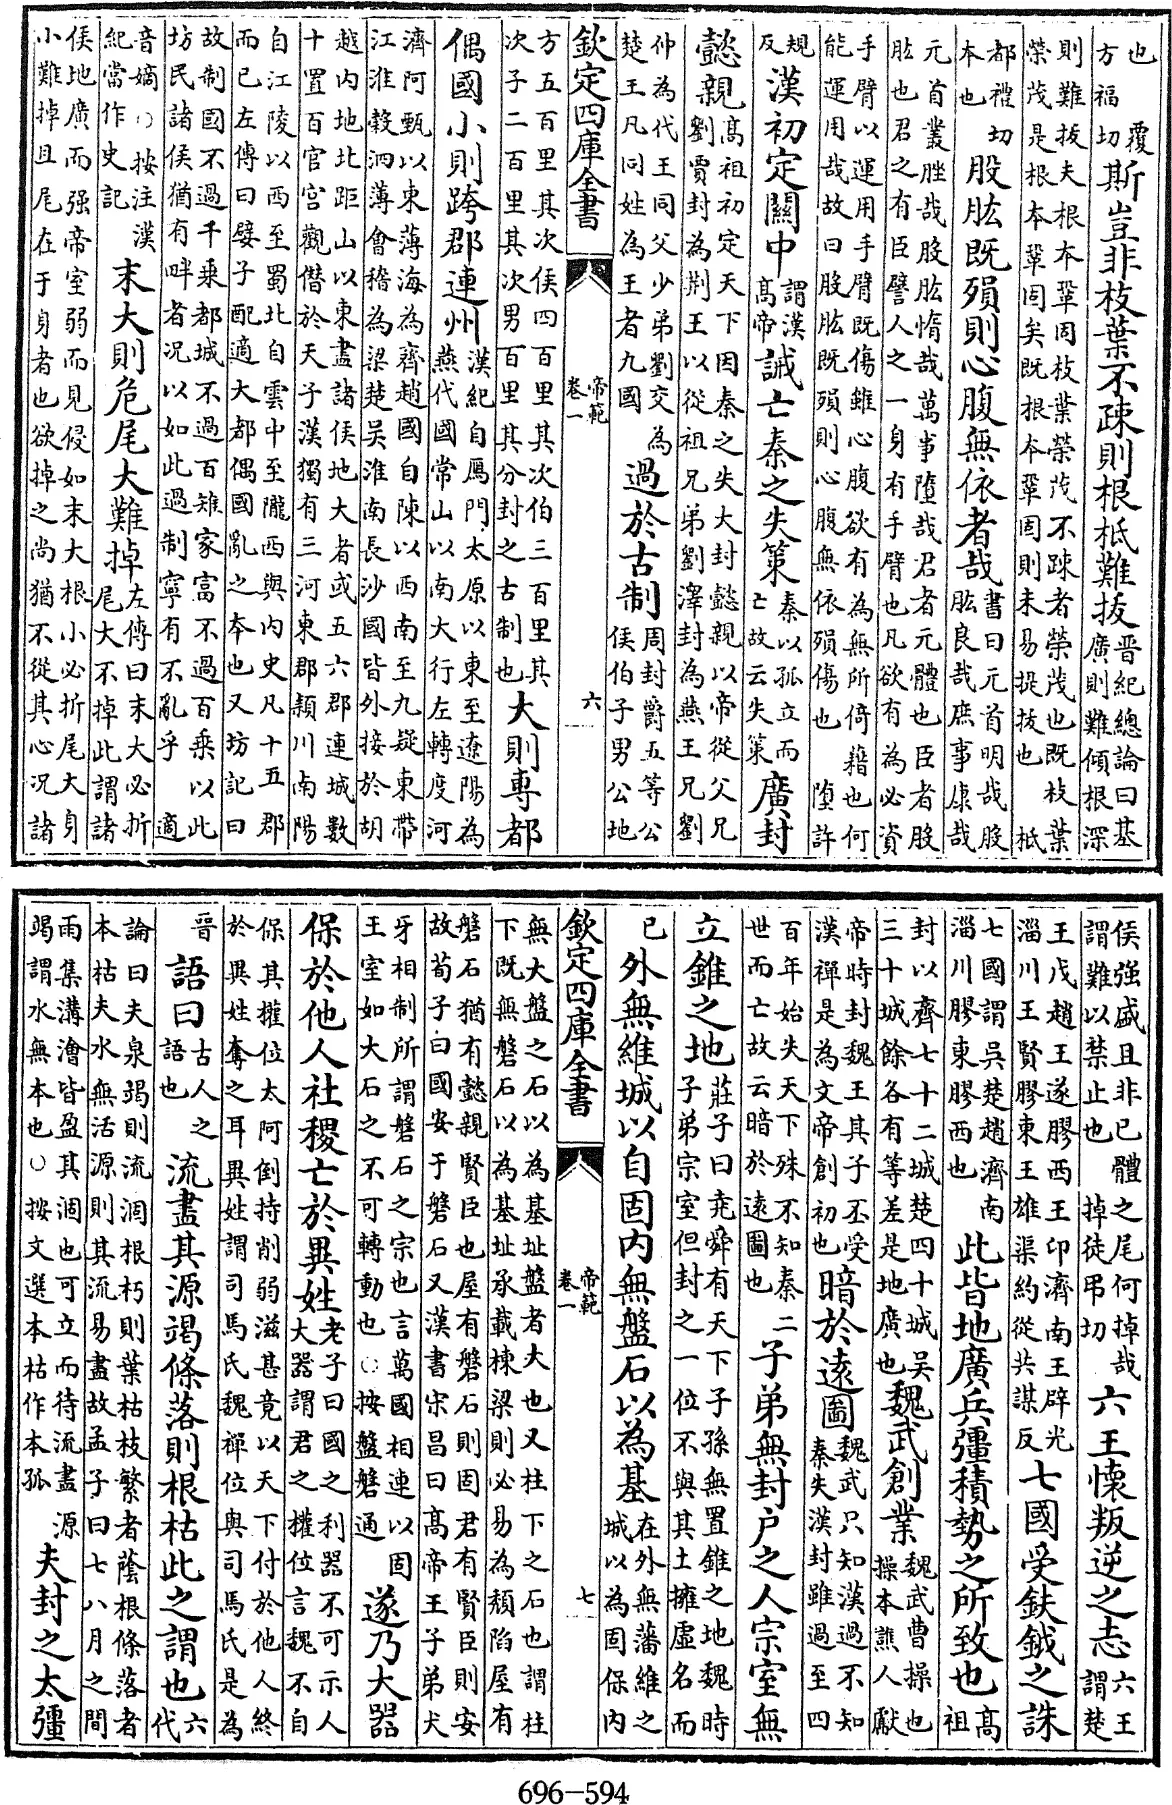 也覆方福切斯豈非枝葉不疎則根柢難拔晋紀總論曰基廣則難傾根深
則難拔夫根本鞏固枝葉榮茂不疎者榮茂也既枝葉
榮茂是根本鞏固矣既根本鞏固則未易搃拔也 柢
都禮切本也股肱既殞則心腹無依者哉書曰元首明哉股肱良哉庶事康哉
元首叢脞哉股肱惰哉萬事墮哉君者元體也臣者股
肱也君之有臣譬人之一身有手臂也凡欲有為必資
手臂以運用手臂既傷雖心腹欲有為無所倚藉也何
能運用哉故曰股肱既殞則心腹無依殞傷也 墮許
規反漢初定關中謂漢高帝誡亡秦之失策秦以孤立而亡故云失策廣封
懿親髙祖初定天下因秦之失大封懿親以帝從父兄劉賈封為荆王以從祖兄弟劉澤封為燕王兄劉
仲為代王同父少弟劉交為楚王凡同姓為王者九國過於古制周封爵五等公侯伯子男公地
欽定四庫全書 帝範 卷一 六
方五百里其次侯四百里其次伯三百里其次子二百里其次男百里其分封之古制也大則專都
偶國小則跨郡連州漢紀自鴈門太原以東至遼陽為燕代國常山以南大行左轉度河
濟阿甄以東薄海為齊趙國自陳以西南至九疑東帶
江淮糓泗薄會稽為梁楚吳淮南長沙國皆外接於胡
越内地北距山以東盡諸侯地大者或五六郡連城數
十置百官宫觀僭於天子漢獨有三河東郡頴川南陽
自江陵以西至蜀北自雲中至隴西與内史凡十五郡
而已左傳曰嬖子配適大都偶國亂之本也又坊記曰
故制國不過千乗都城不過百雉家富不過百乗以此
坊民諸侯猶有畔者況以如此過制寧有不亂乎 適
音嫡○按注漢紀當作史記末大則危尾大難掉左傳曰末大必折尾大不掉此謂諸
侯地廣而强帝室弱而見侵如末大根小必折尾大身
小難掉且尾在于身者也欲掉之尚猶不從其心況諸
侯强盛且非已體之尾何掉哉謂難以禁止也 掉徒弔切六王懷叛逆之志六王謂楚
王戊趙王遂膠西王卬濟南王辟光淄川王賢膠東王雄渠約從共謀反七國受鈇鉞之誅
七國謂吳楚趙濟南淄川膠東膠西也此皆地廣兵彊積勢之所致也髙祖
封以齊七十二城楚四十城吳三十城餘各有等差是地廣也魏武創業魏武曹操也操本譙人獻
帝時封魏王其子丕受漢禪是為文帝創初也暗於遠圖魏武只知漢過不知秦失漢封雖過至四
百年始失天下殊不知秦二世而亡故云暗於遠圖也子弟無封戸之人宗室無
立錐之地莊子曰堯舜有天下子孫無置錐之地魏時子弟宗室但封之一位不與其土擁虚名而
已外無維城以自固内無盤石以為基在外無藩維之城以為固保内
欽定四庫全書 帝範 卷一 七
無大盤之石以為基址盤者大也又柱下之石也謂柱
下既無磐石以為基址承載棟梁則必易為頽陷屋有
磐石猶有懿親賢臣也屋有磐石則固君有賢臣則安
故荀子曰國安于磐石又漢書宋昌曰髙帝王子弟犬
牙相制所謂磐石之宗也言萬國相連以固王室如大石之不可轉動也○按盤磐通遂乃大器
保於他人社稷亡於異姓老子曰國之利器不可示人大器謂君之權位言魏不自
保其權位太阿倒持削弱滋甚竟以天下付於他人終
於異姓奪之耳異姓謂司馬氏魏禪位與司馬氏是為
晉語曰古人之語也流盡其源竭條落則根枯此之謂也六代
論曰夫泉竭則流涸根朽則葉枯枝繁者蔭根條落者
本枯夫水無活源則其流易盡故孟子曰七八月之間
雨集溝澮皆盈其涸也可立而待流盡源竭謂水無本也○按文選本枯作本孤夫封之太彊
696-594